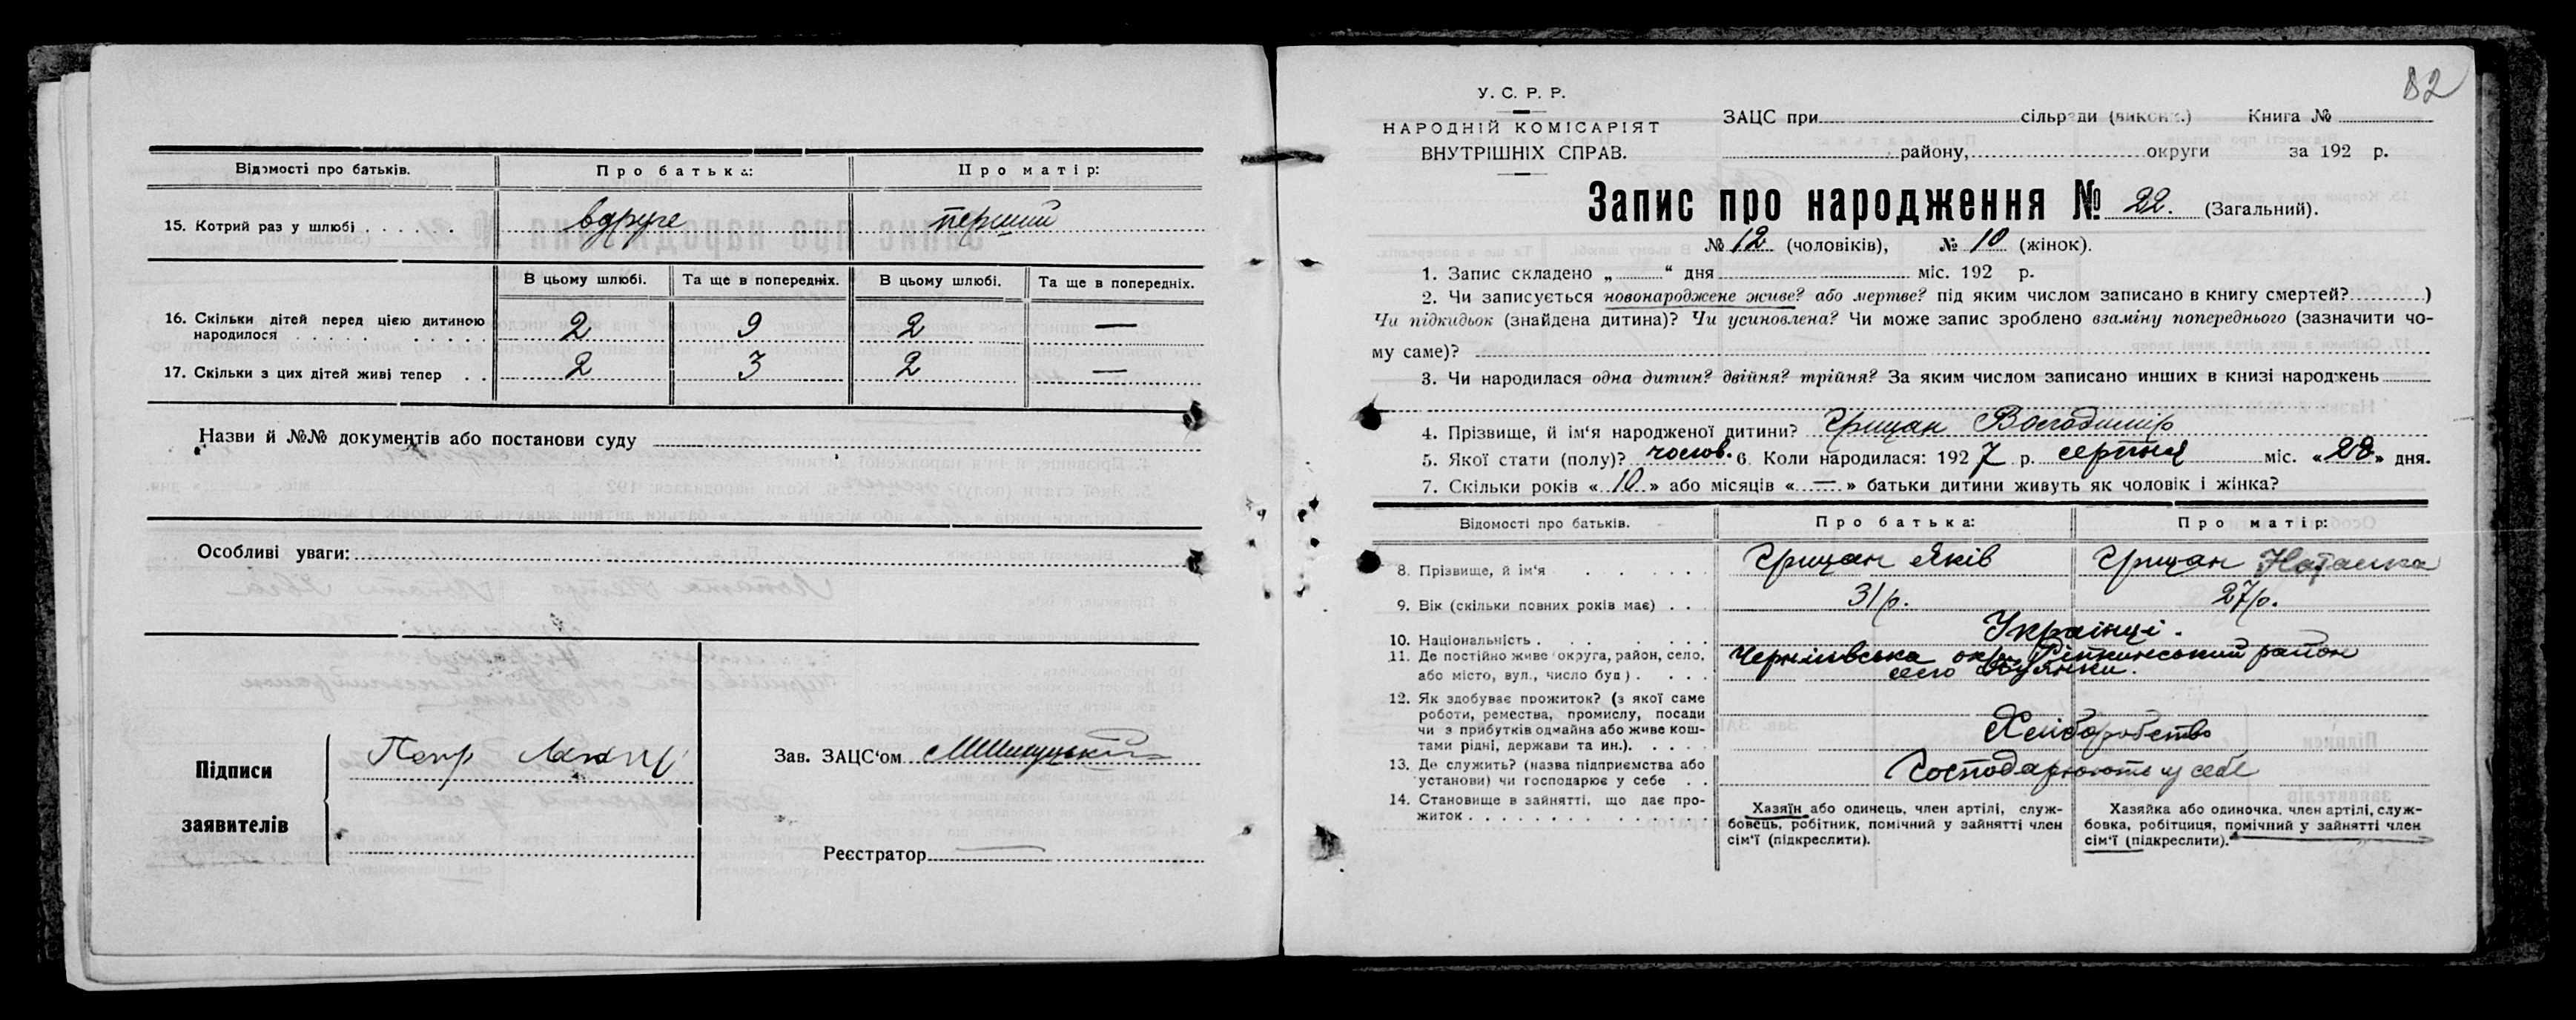 Відомості про батьків. Про батька: Про матір:
15. Котрий раз у шлюбі . . . . . . вдруге перший
В цьому шлюбі. Та ще в попередніх. В цьому шлюбі. Та ще в попередніх.
16. Скільки дітей перед цією дитиною
народилося . . . . . . . . . . 2 9 2 —
17. Скільки з цих дітей живі тепер . . 2 3 2 —
Назви й №№ документів або постанови суду
Особливі уваги:
Підписи
заявителів
Петр
Зав. ЗАЦС'ом
Реєстратор
82
У. С. Р. Р.
НАРОДНІЙ КОМІСАРІЯТ
ВНУТРІШНІХ СПРАВ.
ЗАЦС при сільради (викон.) Книга №
району, округи за 192 р.
Запис про народження № 22. (Загальний).
№ 12 (чоловіків), № 10 (жінок).
1. Запис складено „ “ дня міс. 192 р.
2. Чи записується новонароджене живе? або мертве? під яким числом записано в книгу смертей? )
Чи підкидьок (знайдена дитина)? Чи усиновлена? Чи може запис зроблено взаміну попереднього (зазначити чо-
му саме)?
3. Чи народилася одна дитин? двійня? трійня? За яким числом записано инших в книзі народжень
4. Прізвище, й ім'я народженої дитини? Грицан Володимир
5. Якої стати (полу)? чолов. 6. Коли народилася: 1927 р. серпня міс. «28» дня.
7. Скільки років «10» або місяців «—» батьки дитини живуть як чоловік і жінка?
Відомості про батьків. Про батька: Про матір:
8. Прізвище, й ім'я . . . . . . Грицан Яків Грицан Наталка
9. Вік (скільки повних років має) . . . 31 р. 27 р.
10. Національність . . . . . . . Українці.
11. Де постійно живе округа, район, село, Чернігівська окр. Ріпкинський район
або місто, вул., число буд) . . . . село
12. Як здобуває прожиток? (з якої саме
роботи, ремества, промислу, посади
чи з прибутків одмайна або живе кош-
тами рідні, держави та ин.). . . . . Хліборобство
13. Де служить? (назва підприємства або
установи) чи господарює у себе . . Господарюють у себе
14. Становище в зайнятті, що дає про-
житок . . . . . . . . . . . . .
Хазяїн або одинець, член артілі, служ-
бовець, робітник, помічний у зайнятті член
сім'ї (підкреслити).
Хазяйка або одиночка, член артілі, служ-
бовка, робітциця, помічний у зайнятті член
сім'ї (підкреслити).